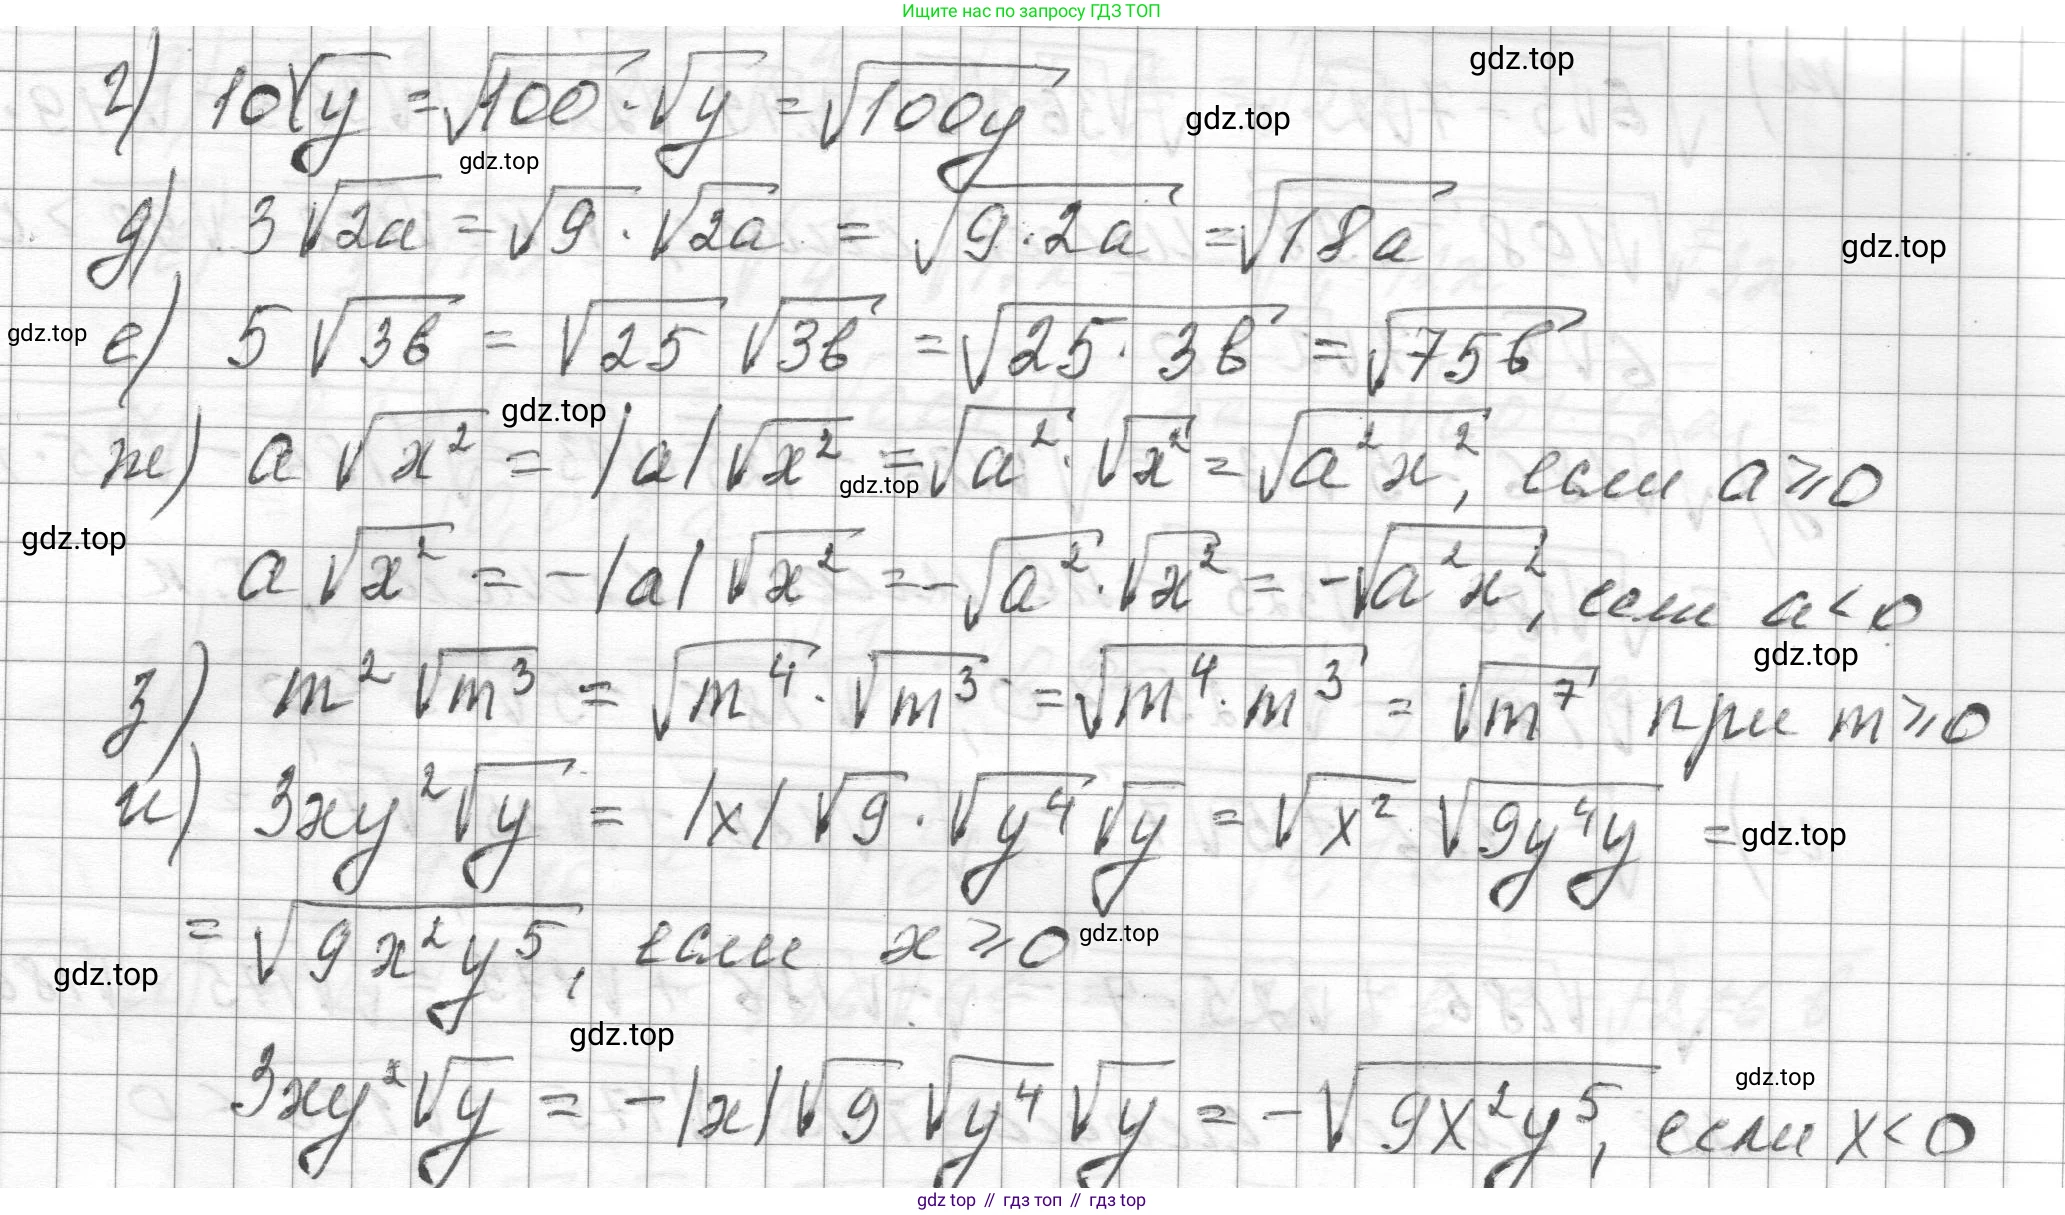 Ищите нас по запросу ГДЗ ТОП
gdz.top
г) 10√y = √100 · √y = √(100y)
gdz.top
gdz.top
д) 3√(2a) = √9 · √(2a) = √(9·2a) = √(18a)
gdz.top
gdz.top
е) 5√(3в) = √25 √(3в) = √(25·3в) = √(75в)
gdz.top
ж) a√(x²) = |a|√(x²) = √(a²) · √(x²) = √(a²x²), если a ≥ 0
gdz.top
gdz.top
a√(x²) = -|a|√(x²) = -√(a²) · √(x²) = -√(a²x²), если a < 0
gdz.top
з) m²√(m³) = √(m⁴) · √(m³) = √(m⁴·m³) = √(m⁷) при m ≥ 0
и) 3xy²√y = |x|√9 · √(y⁴)√y = √(x²) √(9y⁴y) =
gdz.top
= √(9x²y⁵), если x ≥ 0
gdz.top
gdz.top
gdz.top
3xy²√y = -|x|√9 √(y⁴) √y = -√(9x²y⁵), если x < 0
gdz.top
gdz top // гдз топ // gdz top